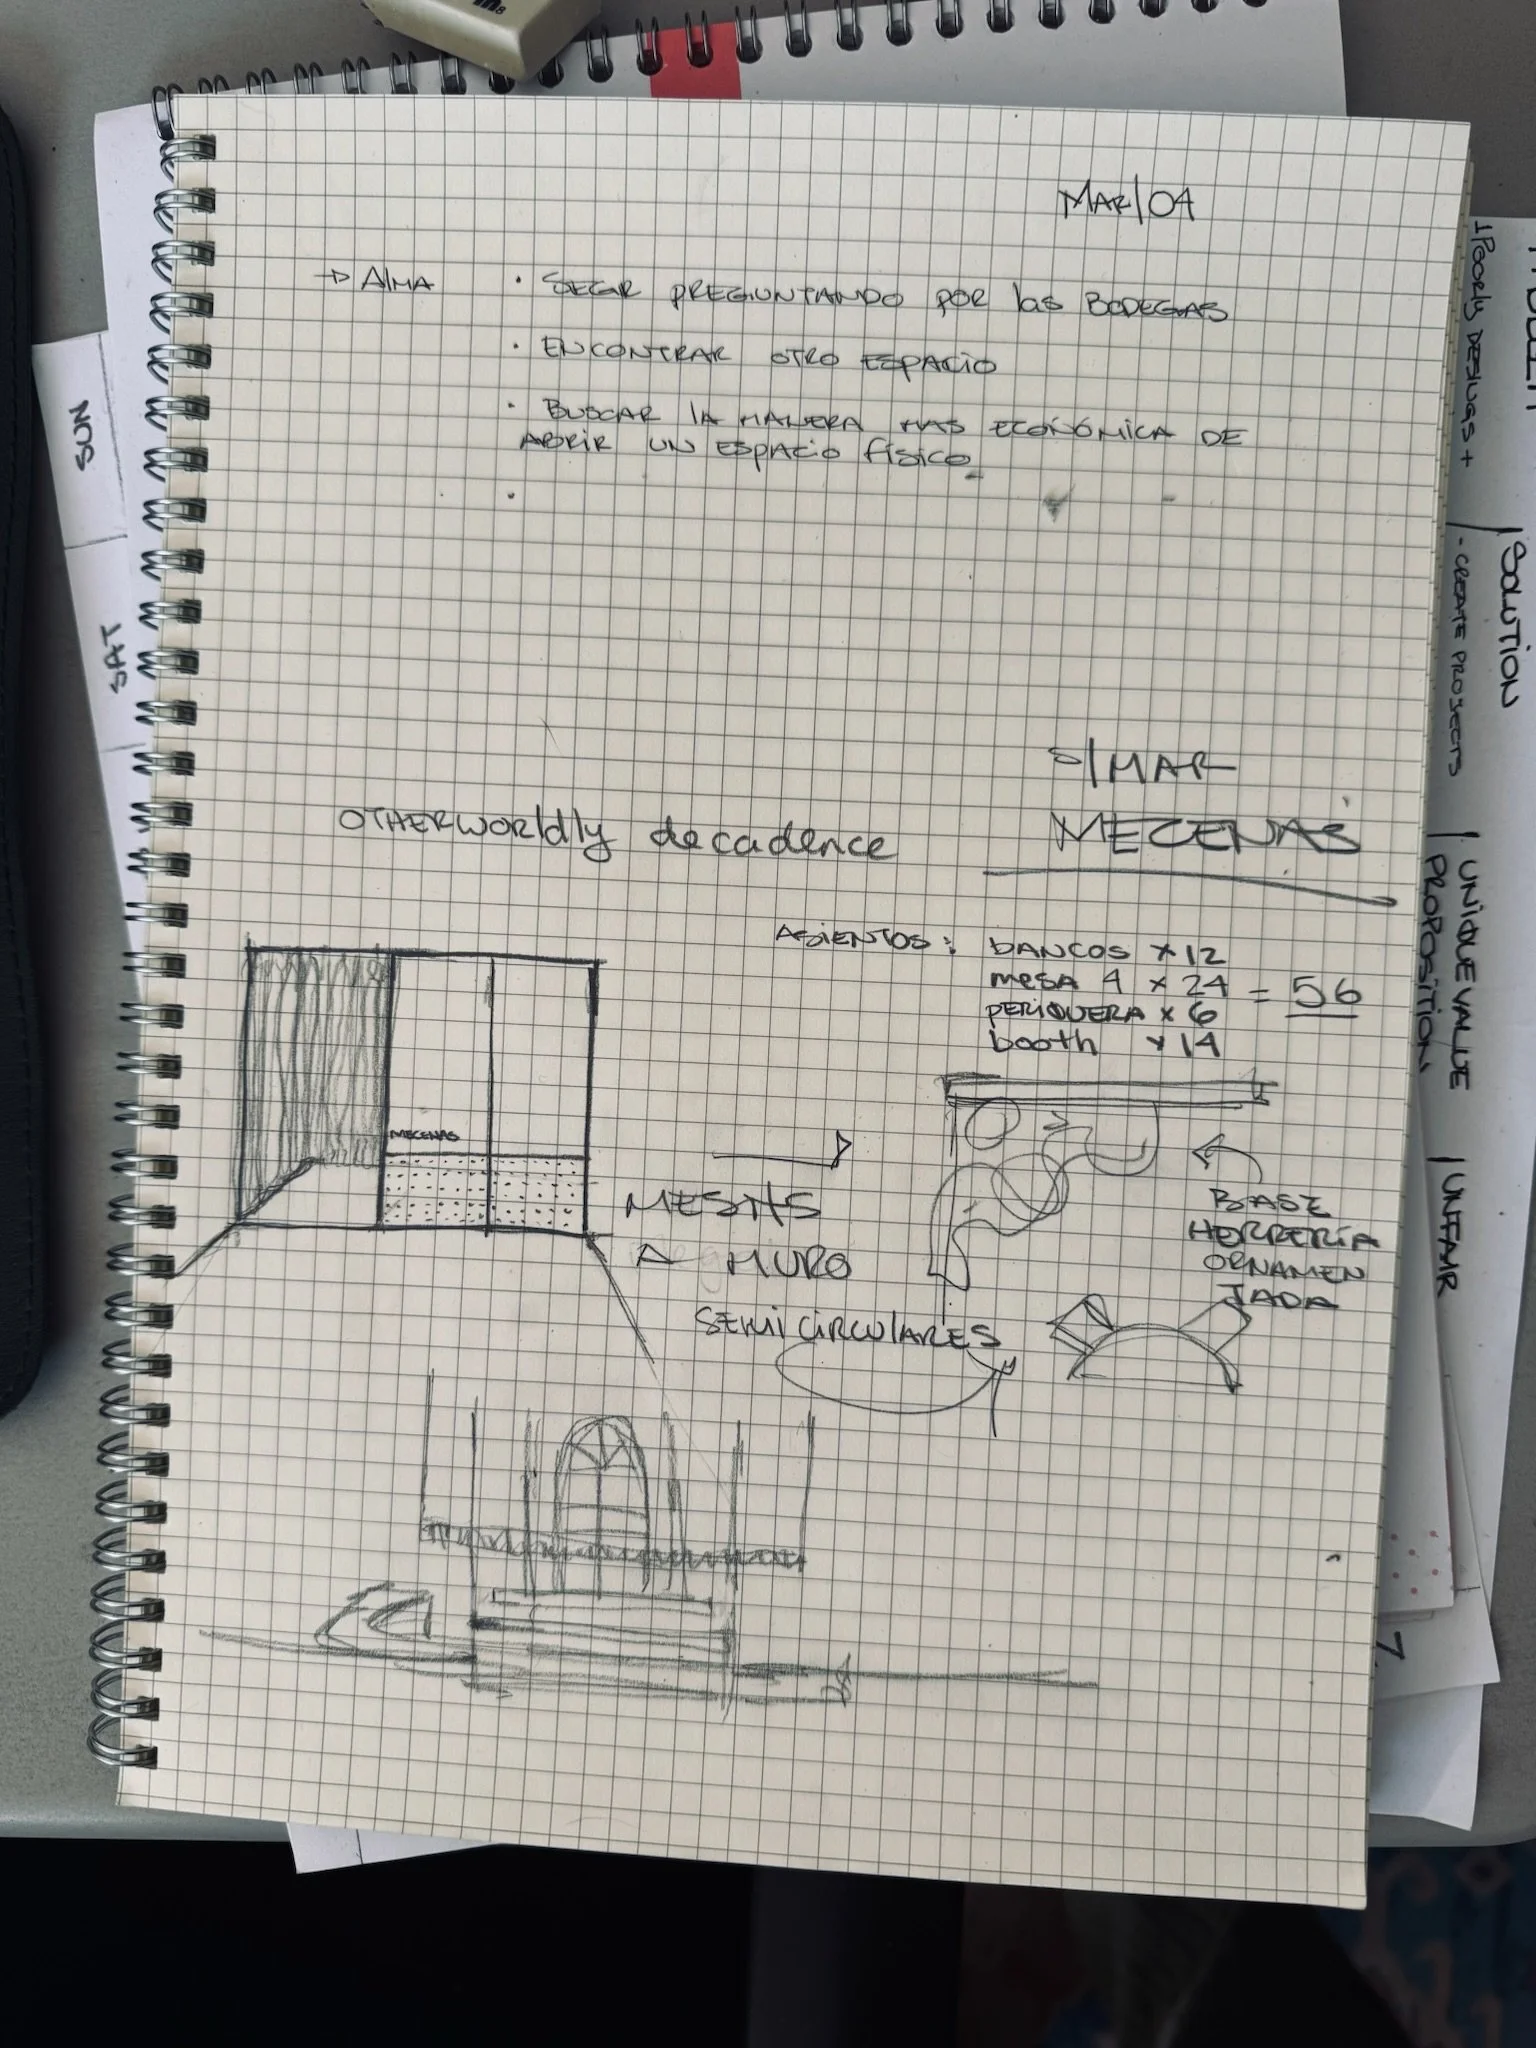 MAR/04
→ AlMA
· SEGIR PREGUNTANDO POR las BODEGAS
· ENCONTRAR OTRO ESPACIO
· BUSCAR lA MANERA MAS ECONÓMICA DE
ABRIR UN ESPACIO físico
·
MAR
OTHERWORldly decadence
MECENAS
ASIENTOS: bANCOS x 12
MESA 4 x 24 = 56
PERIQUERA x 6
booth x 14
MECENAS
A MURO
BASE
HERRERÍA
ORNAMEN
TADA
SEMICIRCULARES
SUN
SAT
1 Poorly DESINGS +
SOLUTION
- CREATE PROJECTS
UNIQUE VALUE
PROPOSITION
UNFAIR
7